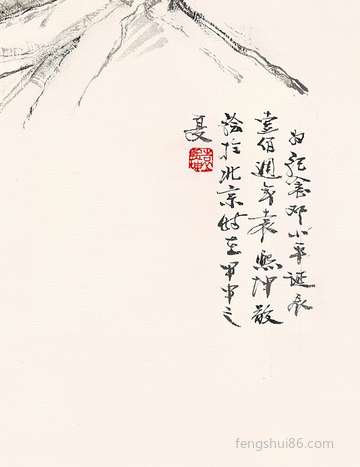 为纪念邓小平诞辰
壹佰週年袁熙坤敬
绘于北京时在甲申之
夏
fengshui86.com